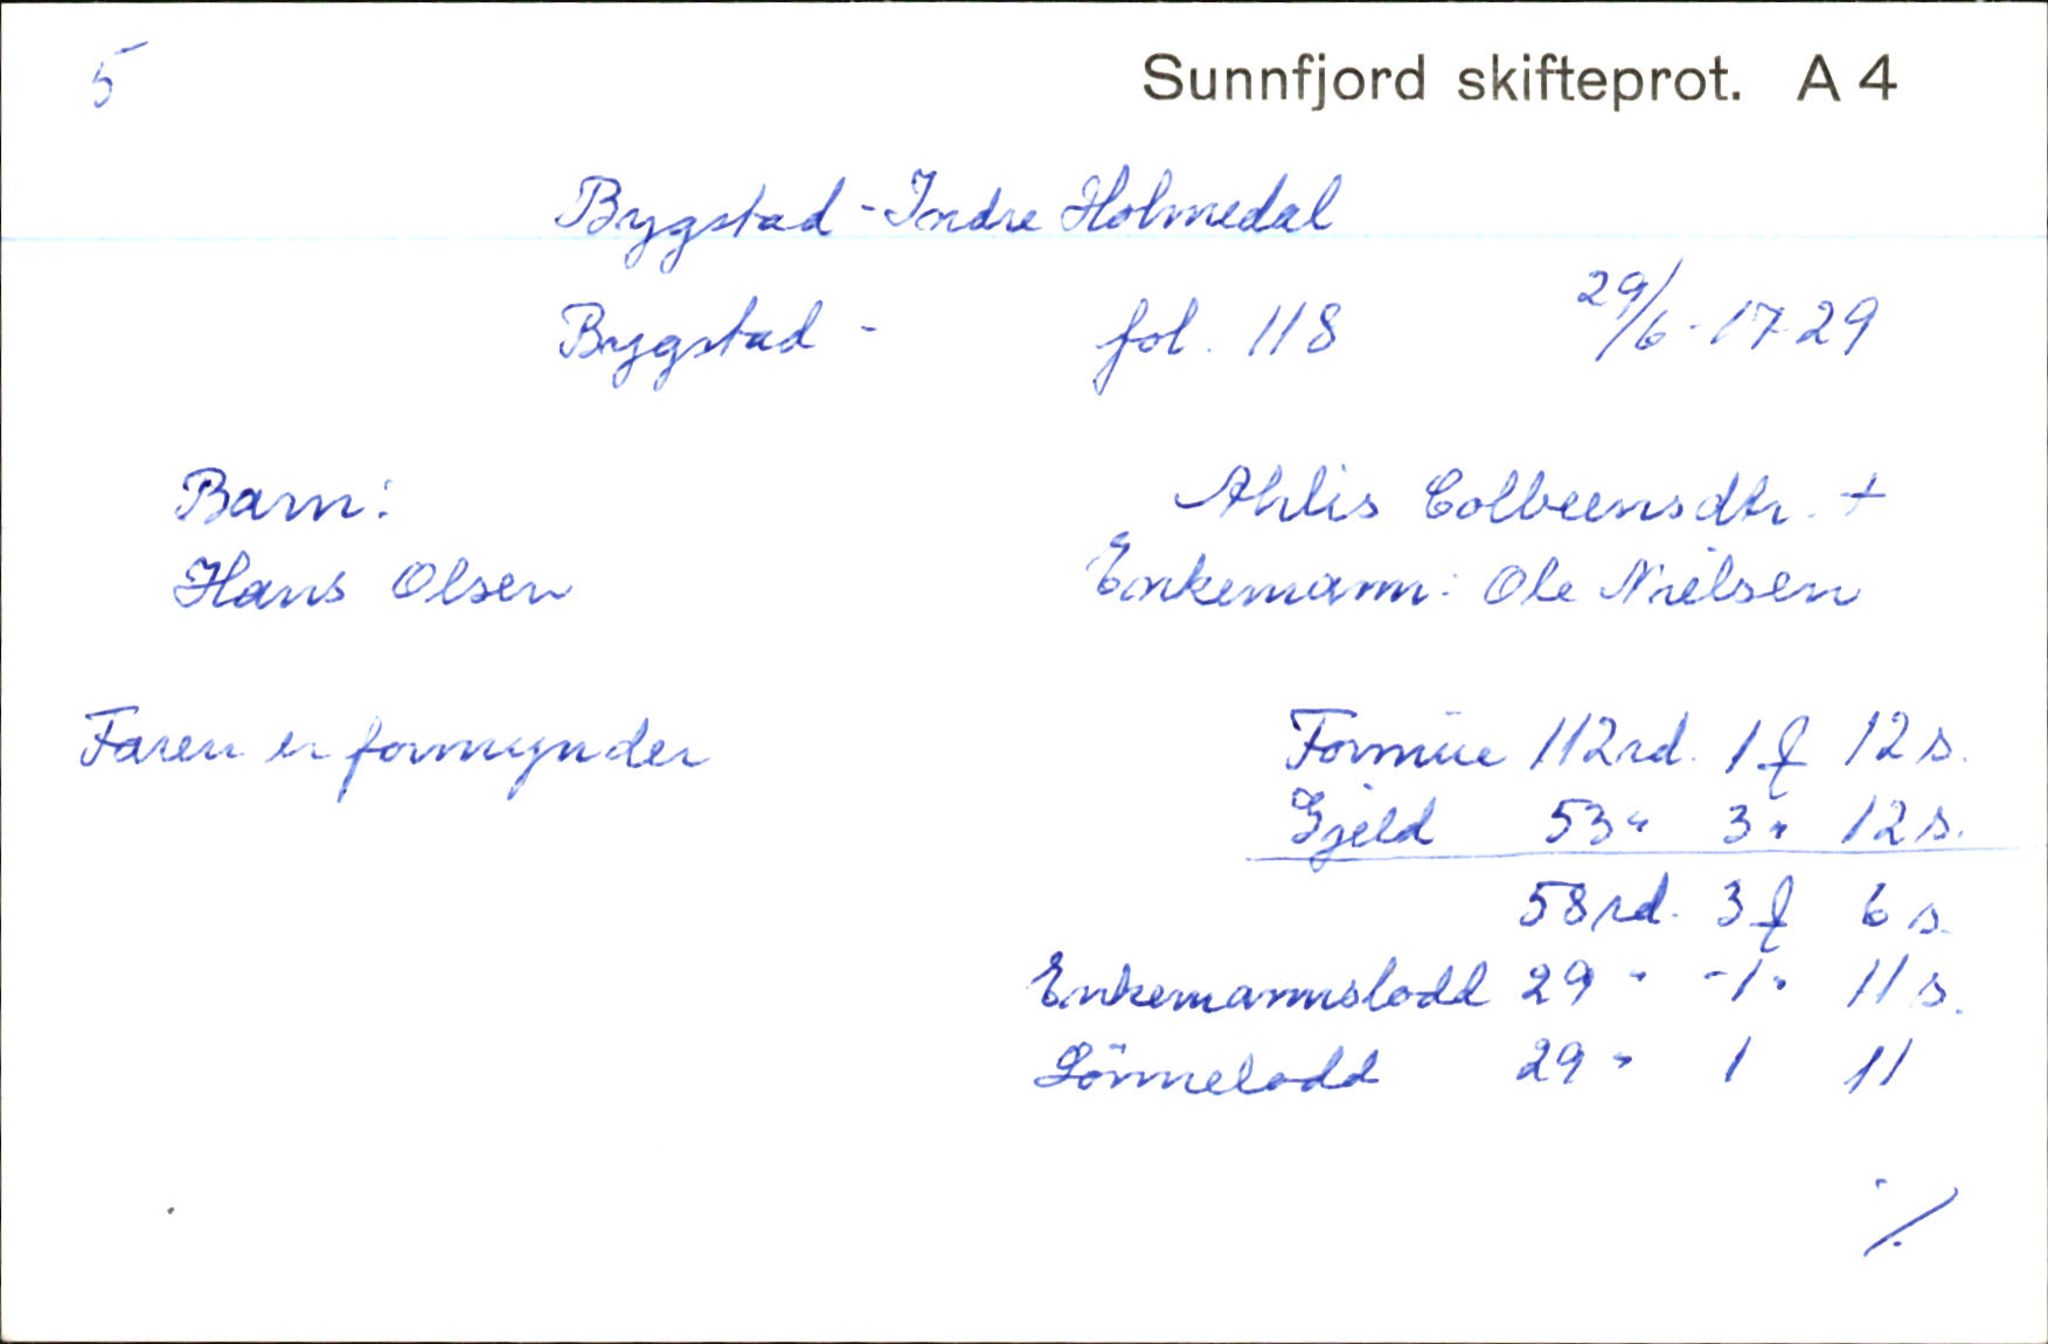 5
Sunnfjord skifteprot. A 4
Bygstad - Indre Holmedal
Bygstad - fol. 118 29/6-1729
Barn: Ahlis Colbeensdtr. +
Hans Olsen Enkemann: Ole Nielsen
Faren er formynder Formue 112 rd. 1 f 12 s.
Gjeld 53 " 3 " 12 s.
58 rd. 3 f 6 s.
Enkemannslodd 29 " - 1 " 11 s.
Sönnelodd 29 " 1 11
./.